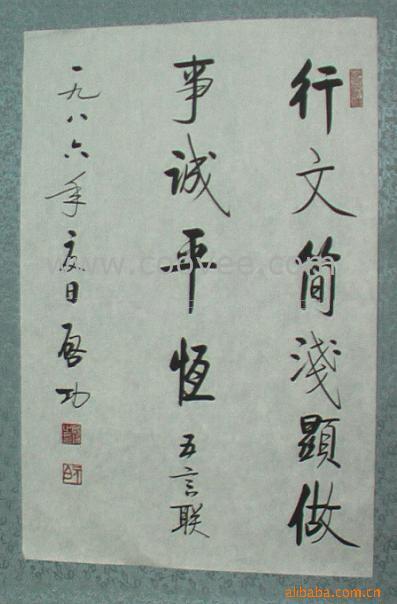 行文简淺顯做
事誠平恆 五言联
一九八六年夏日 启功
www.coovee.com
alibaba.com.cn